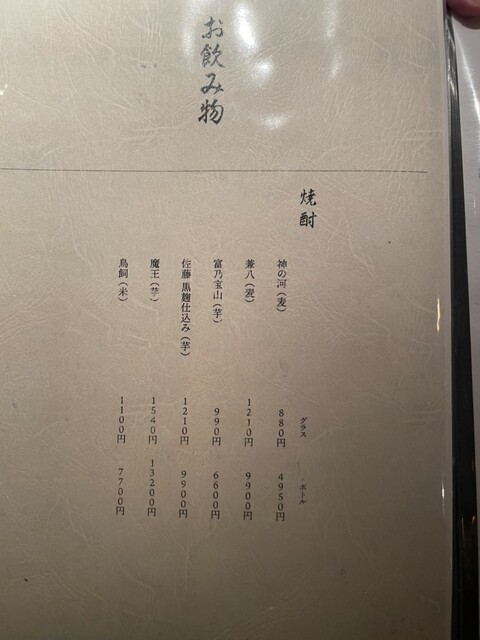 お飲み物
焼酎
グラス ボトル
神の河（麦） 880円 4950円
兼八（麦） 1210円 9900円
富乃宝山（芋） 990円 6600円
佐藤 黒麹仕込み（芋） 1210円 9900円
魔王（芋） 1540円 13200円
鳥飼（米） 1100円 7700円